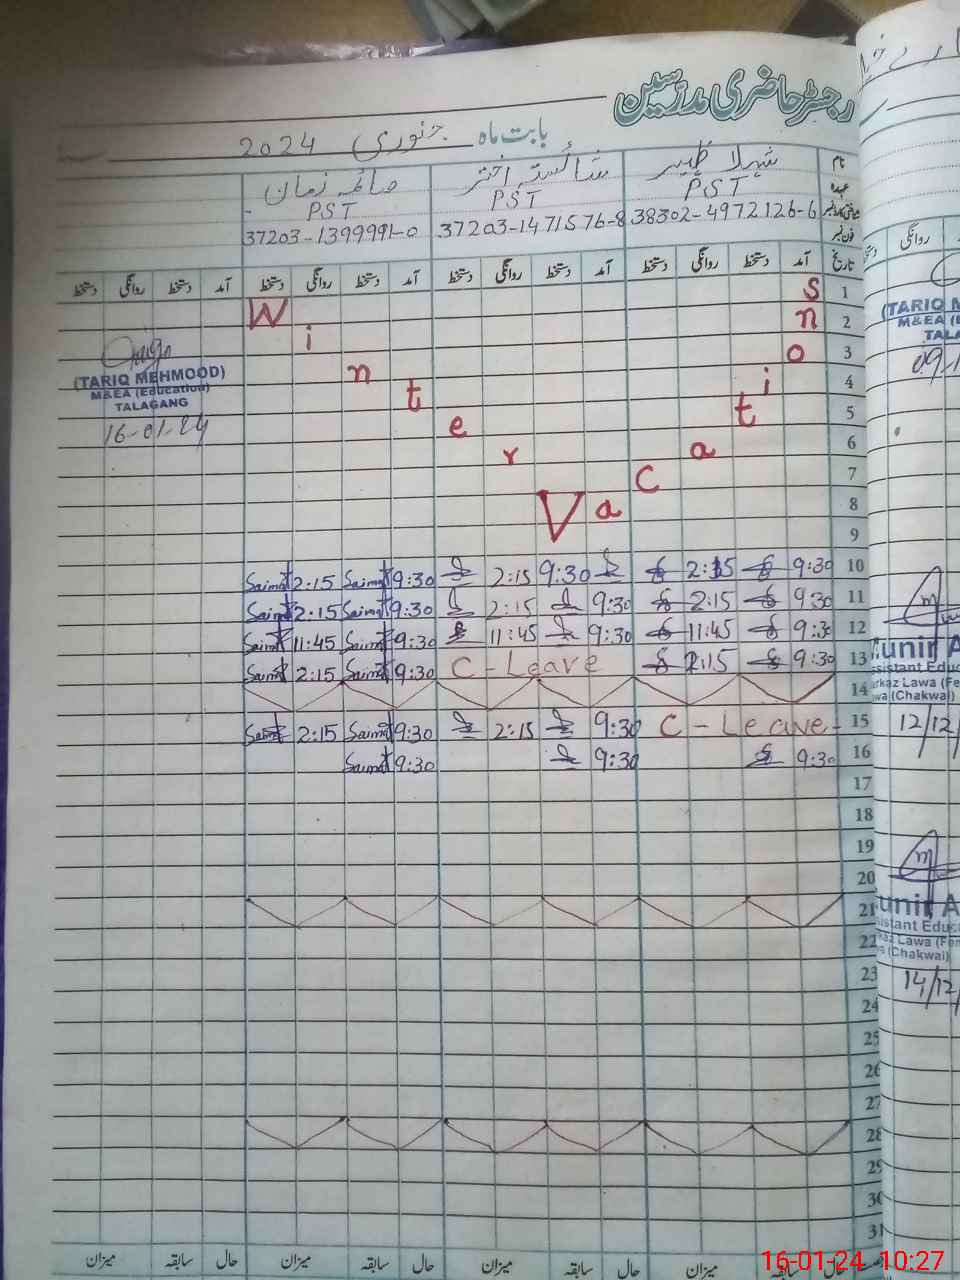 رجسٹر حاضری مدرسین
بابت ماہ جنوری 2024
نام شہلا ظہیر شائستہ اختر صائمہ زمان
عہدہ PST PST PST
38302-4972126-6 37203-1471576-8 37203-1399991-0
فون نمبر
تاریخ آمد دستخط روانگی دستخط آمد دستخط روانگی دستخط آمد دستخط روانگی دستخط آمد دستخط روانگی دستخط
1
2
3
4
5
6
7
8
9
Winter Vacations
(TARIQ MEHMOOD)
M&EA (Education)
TALAGANG
16-01-24
Saima 2:15 Saima 9:30 2:15 9:30 2:15 9:30 10
Saima 2:15 Saima 9:30 2:15 9:30 2:15 9:30 11
Saima 11:45 Saima 9:30 11:45 9:30 11:45 9:30 12
Saima 2:15 Saima 9:30 C-Leave 2:15 9:30 13
14
Saima 2:15 Saima 9:30 2:15 9:30 C-Leave 15
Saima 9:30 9:30 9:30 16
17
18
19
20
21
22
23
24
25
26
27
28
29
30
31
حال سابقہ میزان حال سابقہ میزان حال سابقہ میزان
روانگی
(TARIQ M
M&EA (
TAL
unir A
ssistant Educ
rkaz Lawa (Fe
wa (Chakwal)
12/12/
unir A
istant Educ
kaz Lawa (Fem
(Chakwal)
14/12/
16-01-24 10:27